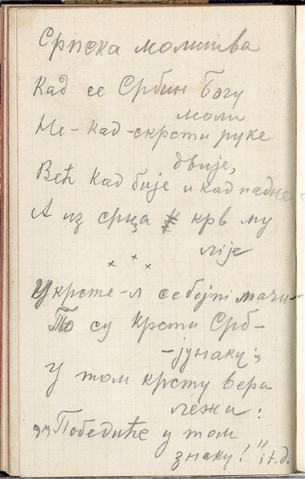 Српска молитва
Кад се Србин Богу
моли
Не-кад-скрсти руке
двије,
Већ кад бије и кад падне
А из срца крв му
лије
Укрсте-л се бојни мачи-
То су крсти Срб-
-јунаку;
У том крсту вера
лежи:
„Победиће у том
знаку!" и т.д.